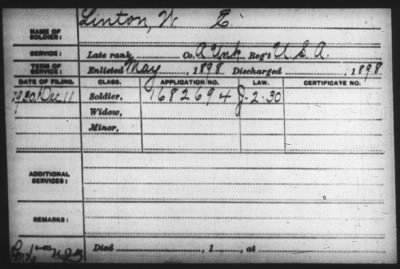 NAME OF SOLDIER: Linton, W E
SERVICE: Late rank Co. A Unk Reg't U.S.A.
TERM OF SERVICE: Enlisted May, 1898 Discharged, 1898
DATE OF FILING. CLASS. APPLICATION NO. LAW. CERTIFICATE NO.
1930 Dec 11 Soldier, 1682694 J-2-30
Widow,
Minor,
ADDITIONAL SERVICES:
REMARKS:
Died, 1, at